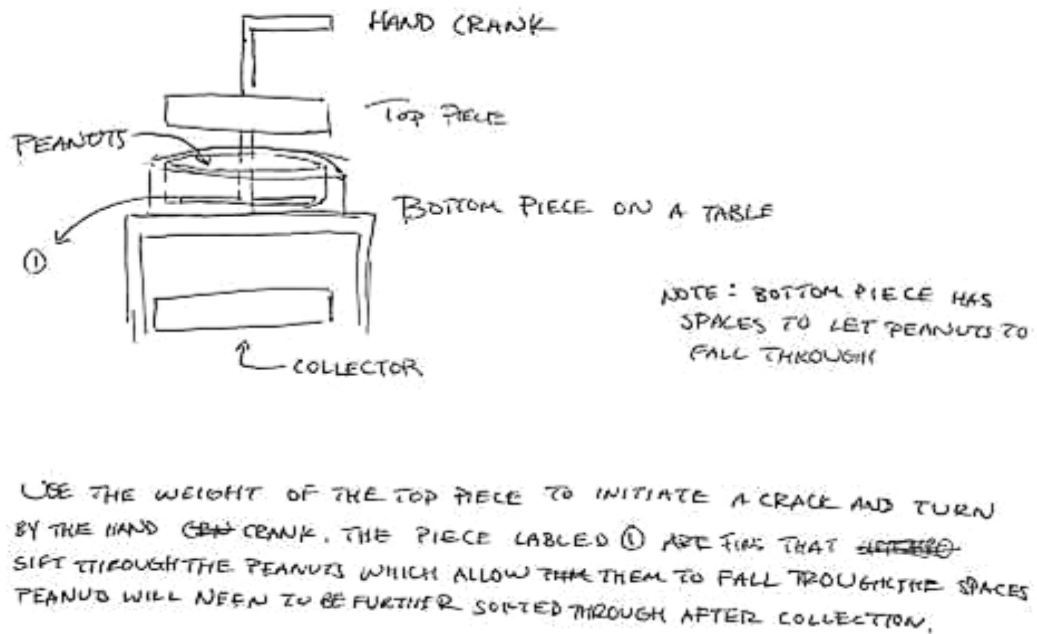 HAND CRANK
TOP PIECE
PEANUTS
BOTTOM PIECE ON A TABLE
①
NOTE: BOTTOM PIECE HAS
SPACES TO LET PEANUTS TO
FALL THROUGH
COLLECTOR
USE THE WEIGHT OF THE TOP PIECE TO INITIATE A CRACK AND TURN
BY THE HAND CRANK. THE PIECE LABLED ① ARE FINS THAT
SIFT THROUGH THE PEANUTS WHICH ALLOW THEM TO FALL TROUGH THE SPACES
PEANUD WILL NEEN TO BE FURTHER SORTED THROUGH AFTER COLLECTION.